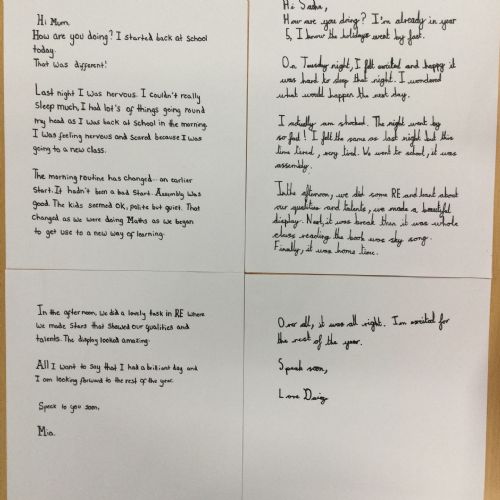 Hi Mum
How are you doing? I started back at school
today.
That was different!
Last night I was nervous. I couldn't really
sleep much, I had lot's of things going round
my head as I was back at school in the morning.
I was feeling nervous and scared because I was
going to a new class.
The morning routine has changed... an earlier
start. It hadn't been a bad start. Assembly was
good. The kids seemed OK, polite but quiet. That
changed as we were doing Maths as we began
to get use to a new way of learning.
In the afternoon we did a lovely task in RE where
we made stars that showed our qualities and
talents. The display looked amazing.
All I want to say that I had a brilliant day and
I am looking forward to the rest of the year.
Speak to you soon,
Mia.
Hi Sasha,
How are you doing? I'm already in year
5, I know the holidays went by fast.
On Tuesday night, I felt excited and happy it
was hard to sleep that night. I wondered
what would happen the next day.
I actually am shocked. The night went by
so fast! I felt the same as last night but this
time tired, very tired. We went to school, it was
assembly.
In the afternoon, we did some RE and learnt about
our qualities and talents, we made a beautiful
display. Next, it was break then it was whole
class reading the book was sky song.
Finally, it was home time.
Over all, it was all right. I'm excited for
the rest of the year.
Speak soon,
Love Daisy